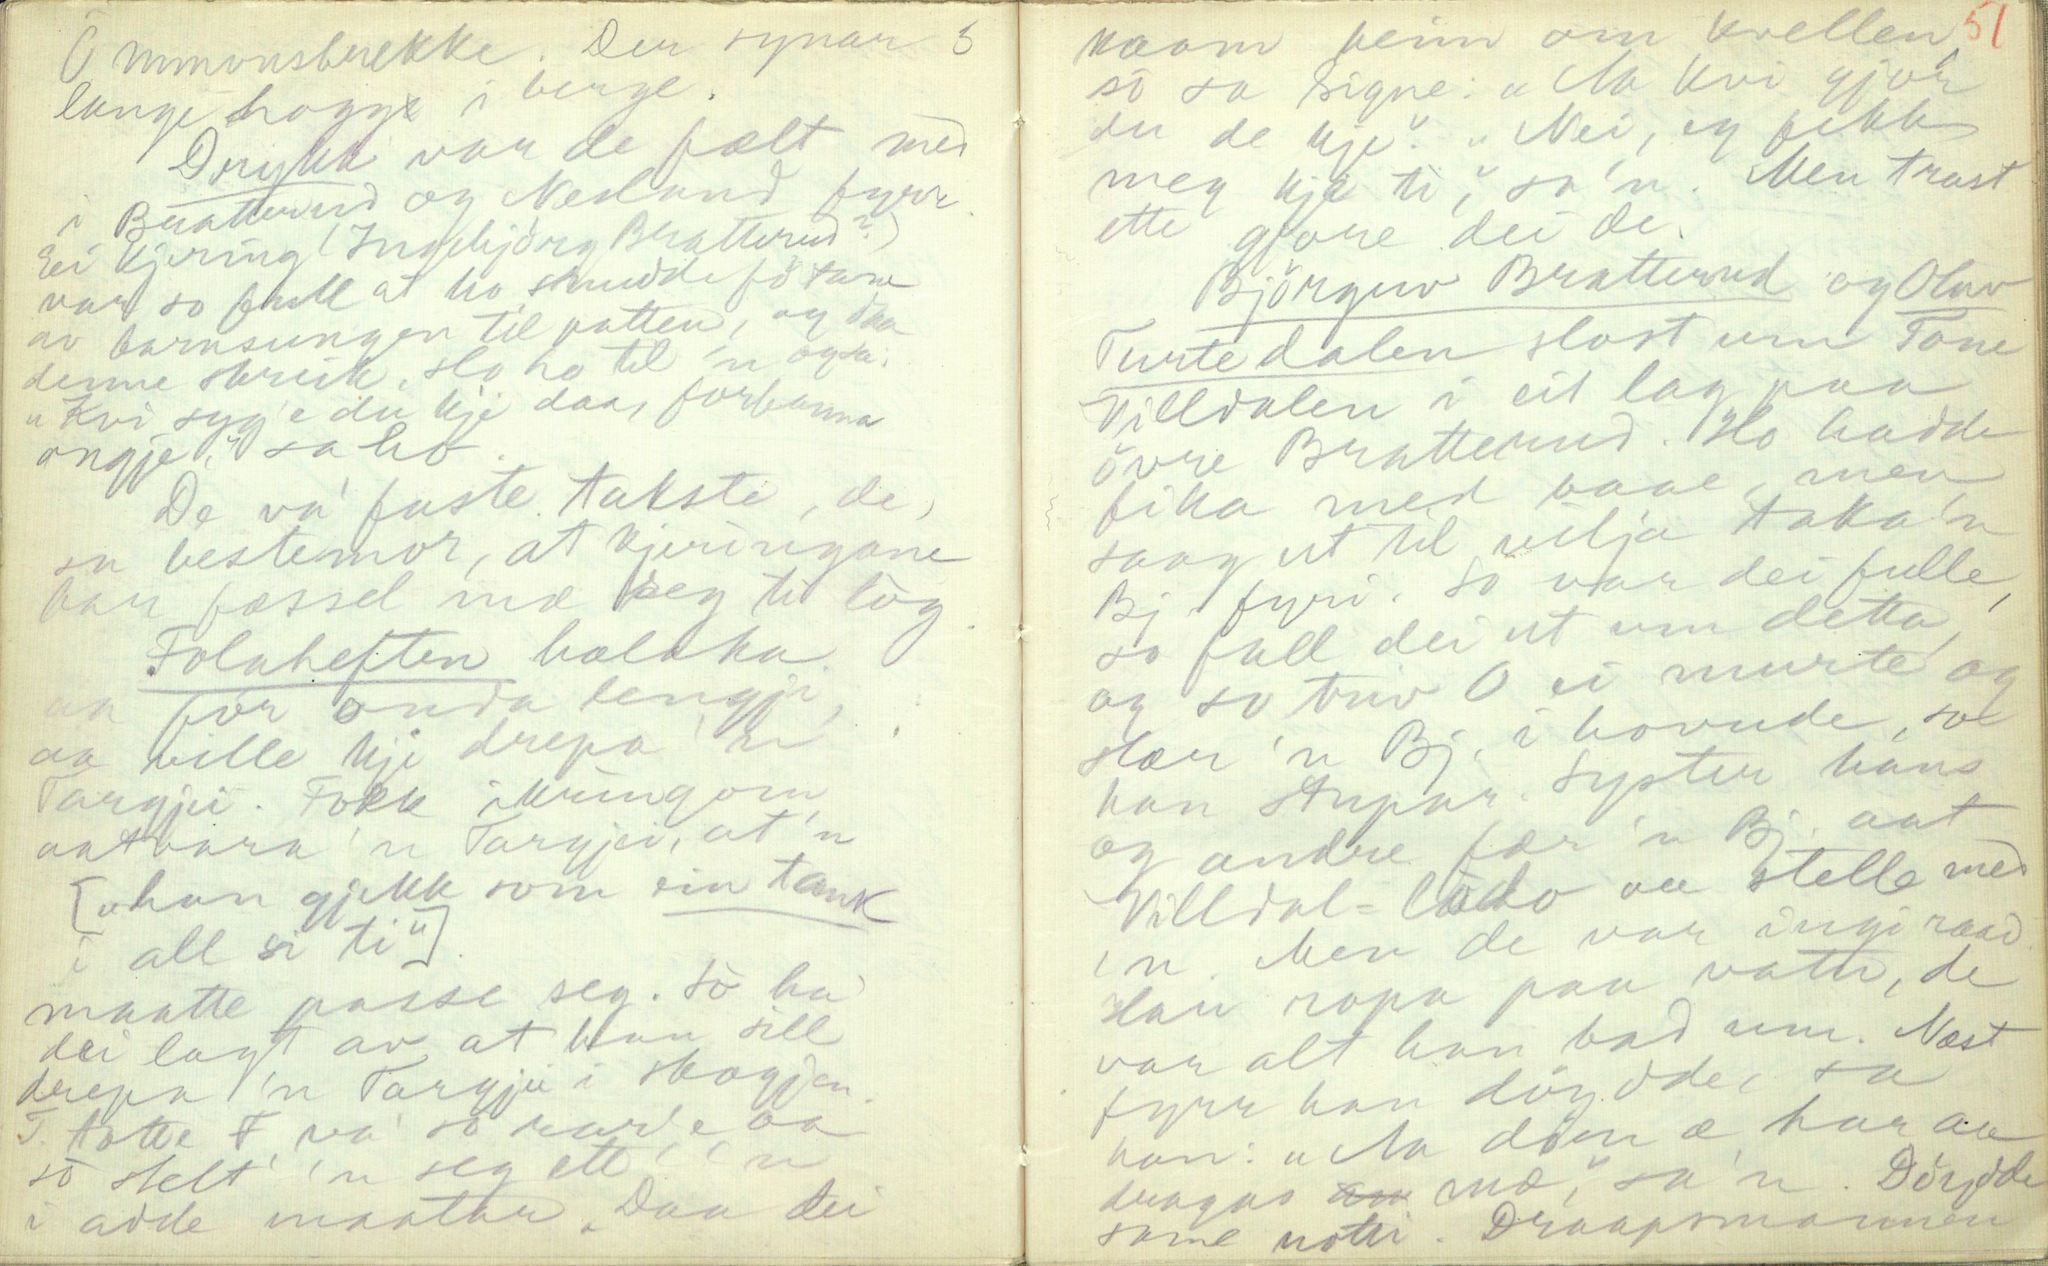 Ommonsbrekke. Der synar 3
lange hogge i berge.
Drykk var de fælt med
i Bratterud og Nesland fyrr.
Ei kjering (Ingebjörg Bratterud?)
var so full at ho snudde fötane
av barnsungen til patten, og daa
denne skreik, slo ho til 'n og sa:
"Kvi syg'e du kje daa, forbanna
ongje," sa ho.
De va' faste takste, de,
sa bestemor, at kjeringane
bar fessel mæ seg ti lög.
Folaheften halska
aa för onda lengji,
aa ville kje drepa 'n
Targjei. Folk ikringom
aatvara 'n Targjei, at 'n
["han gjekk som ein tank
i all si ti"]
maatte passe seg. Sö ha'
dei lagt av at han sill
drepa 'n Targjei i skogjen.
T. totte F va' so rar'e aa
sö stelt' 'n seg ette 'n
i adde maatar. Daa dei
51
kaam heim om kvellen,
sö sa Signe: "Aa kvi gjor
du de kje". "Nei, eg fekk
meg kje ti," sa'n. Men trast
ette gjore dei de.
Björguv Bratterud og Olav
Turtedalen slost um Tone
Villdalen i eit lag paa
övre Bratterud. Ho hadde
fika med baae, men
saag ut til vilja taka'n
Bj. fyri. So var dei fulle,
so fall dei ut um detta,
og so treiv O ei murte og
slær 'n Bj. i hovude, so
han stupar. Syster hans
og andre fær 'n Bj. aat
Villdal-lödo aa stelle med
'n. Men de var ingi raad.
Han ropa paa vatn, de
var alt han bad um. Næst
fyrr han döydde, sa
han: "Aa dem æ har aa
dragas mæ," sa'n. Döydde
same notti. Draapsmannen